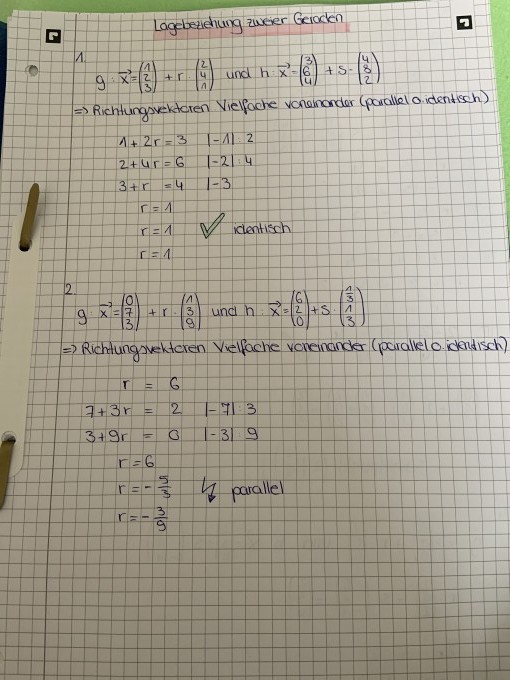 Lagebeziehung zweier Geraden
1.
g: x⃗ = (1 2 3) + r · (2 4 1) und h: x⃗ = (3 6 4) + s · (4 8 2)
=> Richtungsvektoren Vielfache voneinander (parallel o. identisch)
1 + 2r = 3 |-1|: 2
2 + 4r = 6 |-2|: 4
3 + r = 4 |-3
r = 1
r = 1 ✓ identisch
r = 1
2.
g: x⃗ = (0 7 3) + r · (1 3 9) und h: x⃗ = (6 2 0) + s · (1/3 1 3)
=> Richtungsvektoren Vielfache voneinander (parallel o. identisch)
r = 6
7+3r = 2 |-7|: 3
3+9r = 0 |-3|: 9
r = 6
r = -5/3 ↯ parallel
r = -3/9